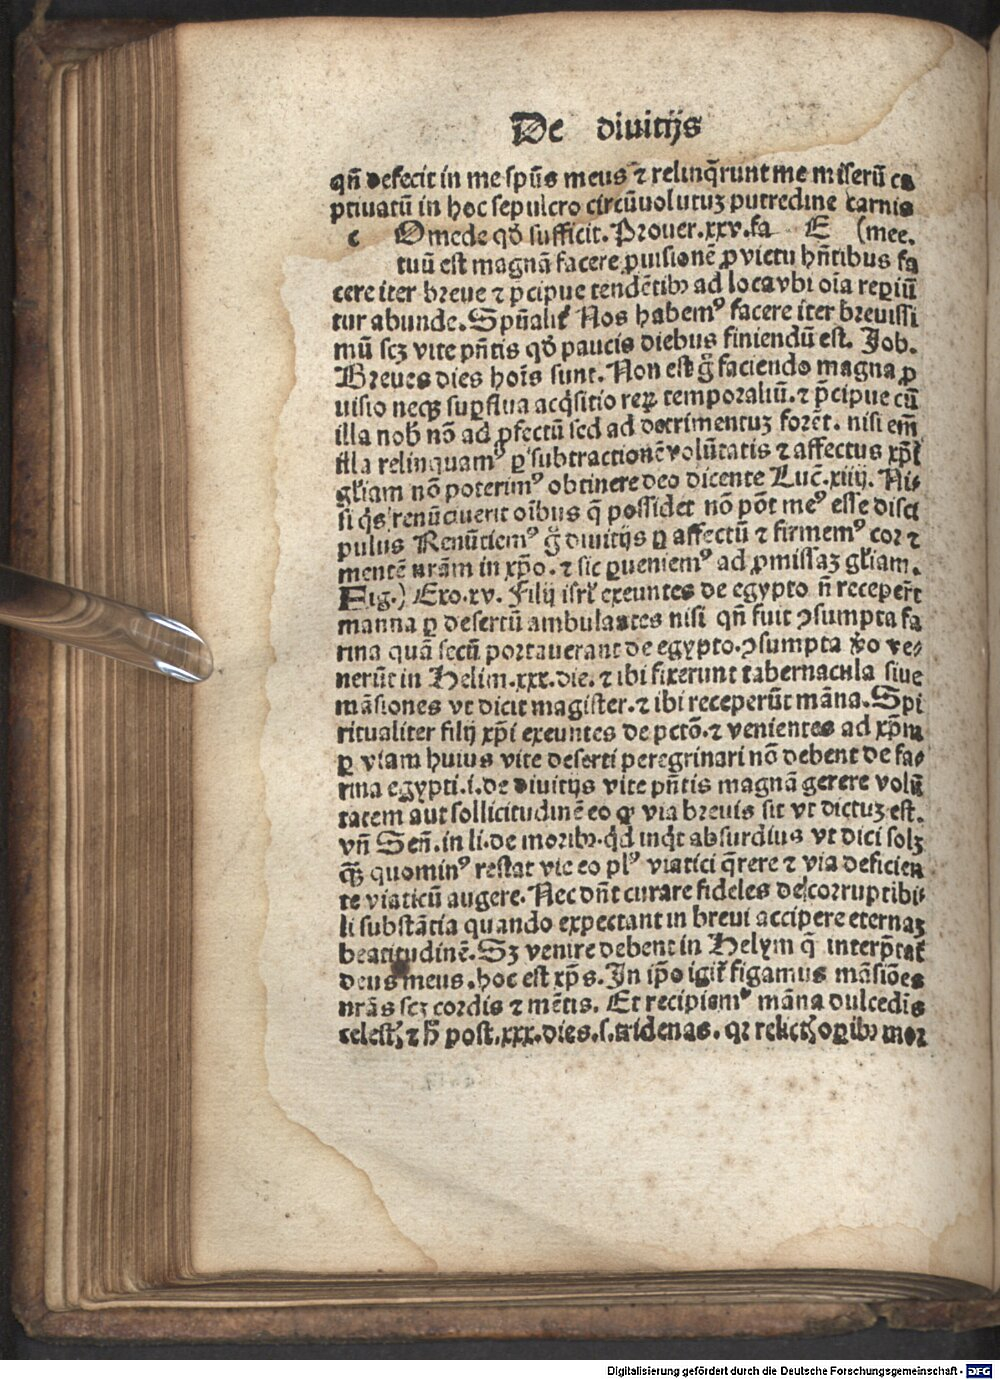 De diuitijs
qn̄ defecit in me spūs meus ⁊ relinq̄runt me miserū ca
ptiuatū in hoc sepulcro circūuolutuʒ putredine carnis
c Omede qđ sufficit. Prouer.xxv.fa E (mee.
tuū est magnā facere ꝓuisionē ꝓ victu hn̄tibus fa
cere iter breue ⁊ p̄cipue tendētibꝫ ad loca vbi oīa reꝑiū
tur abunde. Spūalit̄ Nos habemꝰ facere iter breuissi
mū scꝫ vite pn̄tis qđ paucis diebus finiendū est. Job.
Breues dies hoīs sunt. Non est g̊ faciendo magna ꝓ
uisio necꝫ suꝑflua acq̇sitio reꝝ temporaliū. ⁊ p̄cipue cū
illa nob̄ nō ad ꝓfectū sed ad detrimentuʒ forēt. nisi em̄
illa relinquamꝰ ꝑ subtractionē volūtatis ⁊ affectus xp̄i
gl̄iam nō poterimꝰ obtinere deo dicente Luc̄.xiiij. Ni⸗
si q̇s renūciuerit oībus q̄ possidet nō pōt meꝰ esse disci
pulus Renūciemꝰ g̊ diuitijs ꝑ affectū ⁊ firmemꝰ cor ⁊
mentē nr̄am in xp̄o. ⁊ sic ꝑueniemꝰ ad ꝓmissaʒ gl̄iam.
Fig.) Exo.xv. Filij isrl̄ exeuntes de egypto n̄ receper̄t
manna ꝑ desertū ambulantes nisi qn̄ fuit ↄsumpta fa
rina quā secū portauerant de egypto. ↄsumpta v̊o ve⸗
nerūt in Helim.xxx.die. ⁊ ibi fixerunt tabernacula siue
māsiones vt dicit magister. ⁊ ibi receperūt māna. Spi
ritualiter filij xp̄i exeuntes de pctō. ⁊ venientes ad xp̄m
ꝑ viam huius vite deserti peregrinari nō debent de fa⸗
rina egypti .i. de diuitijs vite pn̄tis magnā gerere volū
tatem aut sollicitudinē eo ꝙ via breuis sit vt dictuʒ est.
vn̄ Sen̄. in li. de moribꝫ. qd̄ inq̇t absurdius vt dici solʒ
q̄ꝫ quominꝰ restat vie eo plꝰ viatici q̄rere ⁊ via deficien
te viaticū augere. Nec dn̄t curare fideles de corruptibi⸗
li substātia quando expectant in breui accipere eternaʒ
beatitudinē. Sʒ venire debent in Helym q̄ interp̄tat̄
deus meus. hoc est xp̄s. In ip̄o igit̄ figamus māsiōes
nr̄as scꝫ cordis ⁊ mētis. Et recipiemꝰ māna dulcedīs
celestꝭ ⁊ h̄ post.xxx.dies.s.tridenas. qꝛ relictꝭ oꝑibꝫ mor
Digitalisierung gefördert durch die Deutsche Forschungsgemeinschaft - DFG